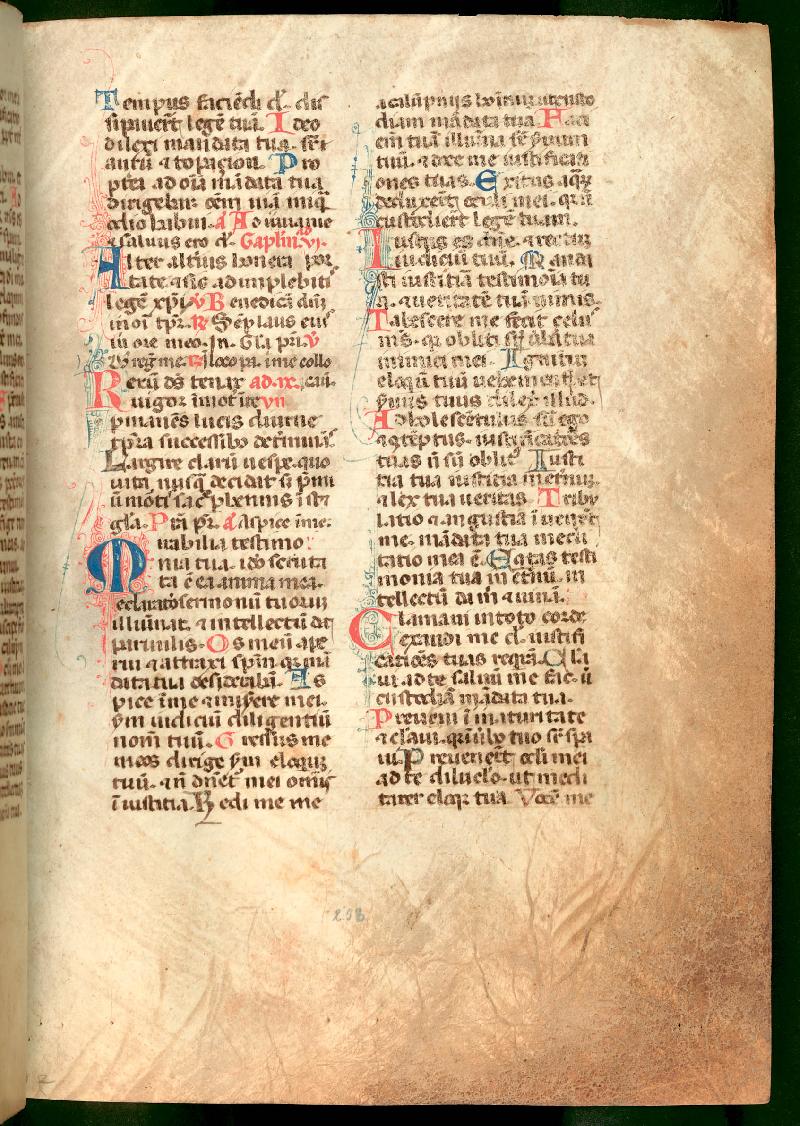 Tempus faciēdi dn̄e dis
sipauert̄ legē tuā. Ideo
dilexi mandata tua. sr̄
aurū ⁊ topazion. Pro
pterea ad oīa mādata tua
dirigebar om̄em uiā iniq̄
odio habui. a Adiuuame
⁊ saluus ero dn̄e. Capl̄m. vi.
Alter altius honera por
tate ⁊ sic adimplebitis
legē xpī. v Benedicā dn̄m
in oī tpr̄. R. Sēp laus eius
in ore meo. In. Gl̄a pr̄i. v
Dn̄s reg me. R. loco pa. ime collo
Rerū ds̄ tenax ad. ix. cui.
uigor īmot īte yn
pmanēs lucis diurne
tpra successibo determinās
Largire clarū uespe. quo
uita nusq̄ decidat s; p̄miū
ū mortis sac̄ pheninis īstet
gla. Pr̄a pr̄. a Aspice īme.
Mirabilia testimo
nia tua. ido scruta
ta ē ea anima mea.
Declaratō sermonū tuorū
illuminat. ⁊ intellectū dat
paruulis. Os meū ape
rui ⁊ attraxi spm̄ q̄a mā
data tua desiderabā. As
pice īme ⁊ miserere mei.
s̄m iudiciū diligentiū
nom̄ tuū. Gressus me
meos dirige s̄m eloquiū
tuū. ⁊ n̄ dn̄et mei omīs
īiustitia. Redi me me
a calūpniis hoīnū ut custo
diam mādata tua. Faci
em tuā illumīna sr̄ seruum
tuū. ⁊ doce me iustificati
ones tuas. Exitus aq̄rū
deduxert̄ oculi mei. quia
custodiert̄ legē tuam.
Iustus es dn̄e. ⁊ rectū
iudiciū tuū. Manda
sti iustitiā testimonia tu
a. ⁊ ueritatē tuā nimis.
Tabescere me fecit zelus
ms. q̄ obliti st̄ uba tua
inimici mei. Ignitū
eloquiū tuū uehement̄. et
seruus tuus dilex illud.
Adholescētulus sū ego
⁊ ⁊tēptus. iustificatiōes
tuas n̄ sū oblitus Iusti
tia tua iustitia ineternū.
⁊ lex tua ueritas. Tribu
latio ⁊ angustia īuenert̄
me. mādata tua medi
tatio mea ē. Eqtas testi
monia tua in eternū. in
tellectū da m̄ ⁊ uiuā.
Clamaui intoto corde
exaudi me dn̄e. iustifi
catiōes tuas requirā. Cla
ui ad te saluū me fac. ū
custodiā mādata tua.
Preueni ī maturitate
⁊ clamaui. quia ī ub̄ tuo sr̄ spa
ui. Preuenert̄ oculi mei
ad te diluclo. ut medi
tarer eloq̄a tua. Vocē me
203